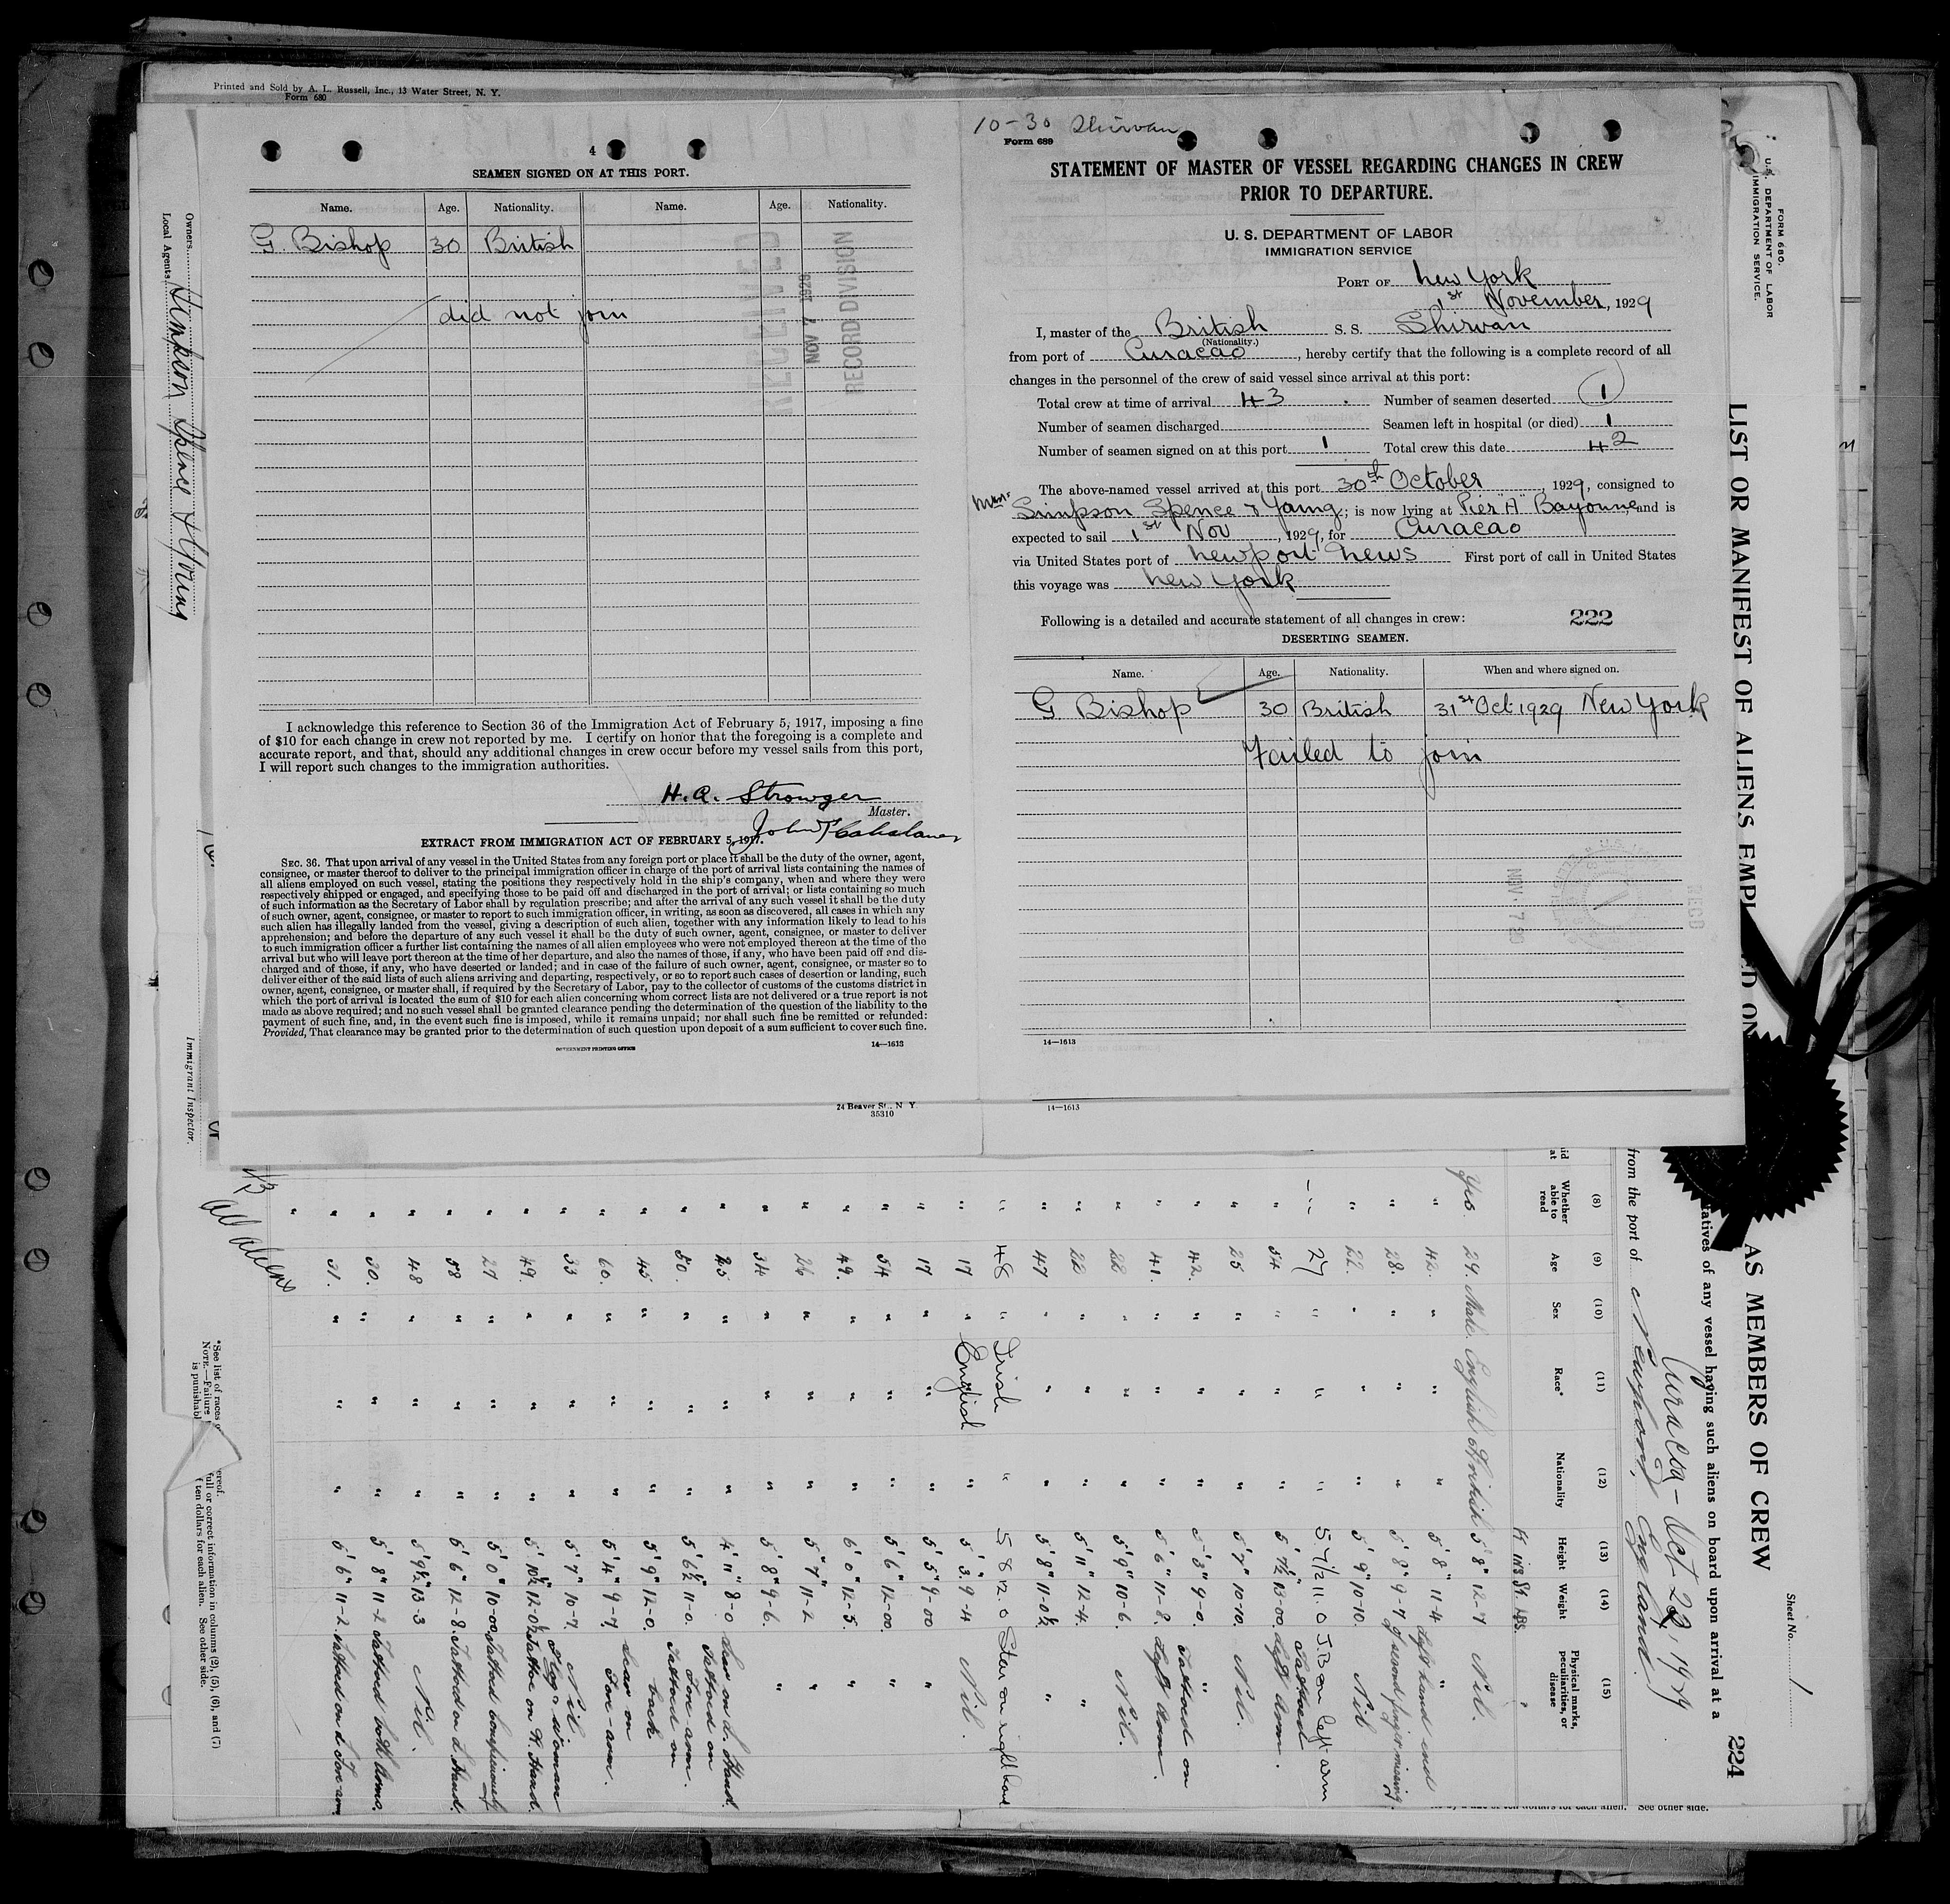 Printed and Sold by A. L. Russell, Inc., 13 Water Street, N. Y.
Form 680
4
SEAMEN SIGNED ON AT THIS PORT.
Name. Age. Nationality. Name. Age. Nationality.
G. Bishop 30 British
did not join
RECEIVED
NOV 7 1929
RECORD DIVISION
I acknowledge this reference to Section 36 of the Immigration Act of February 5, 1917, imposing a fine
of $10 for each change in crew not reported by me. I certify on honor that the foregoing is a complete and
accurate report, and that, should any additional changes in crew occur before my vessel sails from this port,
I will report such changes to the immigration authorities.
H. A. Strowger
Master.
EXTRACT FROM IMMIGRATION ACT OF FEBRUARY 5, 1917.
SEC. 36. That upon arrival of any vessel in the United States from any foreign port or place it shall be the duty of the owner, agent,
consignee, or master thereof to deliver to the principal immigration officer in charge of the port of arrival lists containing the names of
all aliens employed on such vessel, stating the positions they respectively hold in the ship's company, when and where they were
respectively shipped or engaged, and specifying those to be paid off and discharged in the port of arrival; or lists containing so much
of such information as the Secretary of Labor shall by regulation prescribe; and after the arrival of any such vessel it shall be the duty
of such owner, agent, consignee, or master to report to such immigration officer, in writing, as soon as discovered, all cases in which any
such alien has illegally landed from the vessel, giving a description of such alien, together with any information likely to lead to his
apprehension; and before the departure of any such vessel it shall be the duty of such owner, agent, consignee, or master to deliver
to such immigration officer a further list containing the names of all alien employees who were not employed thereon at the time of the
arrival but who will leave port thereon at the time of her departure, and also the names of those, if any, who have been paid off and dis-
charged and of those, if any, who have deserted or landed; and in case of the failure of such owner, agent, consignee, or master so to
deliver either of the said lists of such aliens arriving and departing, respectively, or so to report such cases of desertion or landing, such
owner, agent, consignee, or master shall, if required by the Secretary of Labor, pay to the collector of customs of the customs district in
which the port of arrival is located the sum of $10 for each alien concerning whom correct lists are not delivered or a true report is not
made as above required; and no such vessel shall be granted clearance pending the determination of the question of the liability to the
payment of such fine, and, in the event such fine is imposed, while it remains unpaid; nor shall such fine be remitted or refunded:
Provided, That clearance may be granted prior to the determination of such question upon deposit of a sum sufficient to cover such fine.
GOVERNMENT PRINTING OFFICE 14—1613
24 Beaver St., N. Y.
35310
10-30 Shirvan
Form 689
STATEMENT OF MASTER OF VESSEL REGARDING CHANGES IN CREW
PRIOR TO DEPARTURE.
U. S. DEPARTMENT OF LABOR
IMMIGRATION SERVICE
PORT OF New York
1st November, 1929
I, master of the British S. S. Shirvan
(Nationality.)
from port of Curacao, hereby certify that the following is a complete record of all
changes in the personnel of the crew of said vessel since arrival at this port:
Total crew at time of arrival 43 Number of seamen deserted 1
Number of seamen discharged Seamen left in hospital (or died) 1
Number of seamen signed on at this port 1 Total crew this date 42
The above-named vessel arrived at this port 30th October, 1929, consigned to
Messrs Simpson Spence & Young; is now lying at Pier "A" Bayonne and is
expected to sail 1st Nov, 1929, for Curacao
via United States port of Newport News First port of call in United States
this voyage was New York
Following is a detailed and accurate statement of all changes in crew: 222
DESERTING SEAMEN.
Name. Age. Nationality. When and where signed on.
G Bishop 30 British 31st Oct 1929 New York
Failed to join
14—1613
14—1613
Owners
Local Agents Simpson Spence & Young
Immigrant Inspector.
FORM 680.
U. S. DEPARTMENT OF LABOR
IMMIGRATION SERVICE.
LIST OR MANIFEST OF ALIENS EMPL
ED ON
AS MEMBERS OF CREW
Sheet No. 1
224
atives of any vessel having such aliens on board upon arrival at a
Curacoa - Oct 22, 1929
from the port of Newport, England
(8) (9) (10) (11) (12) (13) (14) (15)
Whether able to read Age Sex Race* Nationality Height Weight Physical marks, peculiarities, or disease
Ft INS St. LBS.
Yes. 29. Male. English British 5' 8" 12-7 Nil.
" 42. " " " 5' 8" 11-4 Left hand end
" 28. " " " 5' 8" 9-7 of second finger missing
" 22. " " " 5' 9" 10-10. Nil
" 27 " " " 5-7 1/2 11.0 J.B on left arm
" 54 " " " 5' 7½" 13-00. Tattooed left arm.
" 25 " " " 5' 7" 10-10. Nil.
" 42. " " " 5' 3" 9-0. Tattooed on
" 41. " " " 5' 6" 11-8. left arm.
" 22 " " " 5' 9" 10-6. Nil.
" 22 " " " 5' 11" 12-4. "
" 47 " " " 5' 8" 11-0½ "
" 48 " Irish " 5 8 12.0 Star on right hand
" 17 " English " 5' 3" 9-4 Nil.
" 17 " " " 5' 5" 9-00 "
" 54 " " " 5' 6" 12-00. "
" 49. " " " 6' 0" 12-5. "
" 26 " " " 5' 7" 11-2 "
" 34 " " " 5' 8" 9-6. "
" 45 " " " 4' 11" 8-0 Scar on L. Hand.
" 50. " " " 5' 6½" 11-0. Tattooed on Fore-arm.
" 45 " " " 5' 9" 12-0. Tattooed on back
" 60. " " " 5' 4" 9-7. Scar on Fore-arm.
" 33 " " " 5' 7" 10-7. Nil
" 49. " " " 5' 10½" 12-0½ Flag & woman Tattoo on R. Hand.
" 27 " " " 5' 0" 10-00 Tattooed
" 58 " " " 5' 6" 12-8. Tattooed on L. Hand.
" 48 " " " 5' 9½" 13-3 Nil.
" 30. " " " 5' 8" 11-2 Tattooed both arms.
" 31. " " " 5' 6" 11-2. Tattooed on L Fore arm
43
All aliens
*See list of races
NOTE.—Failure
is punishabl
ereof.
full or correct information in columns (2), (5), (6), and (7)
ten dollars for each alien. See other side.
See other side.